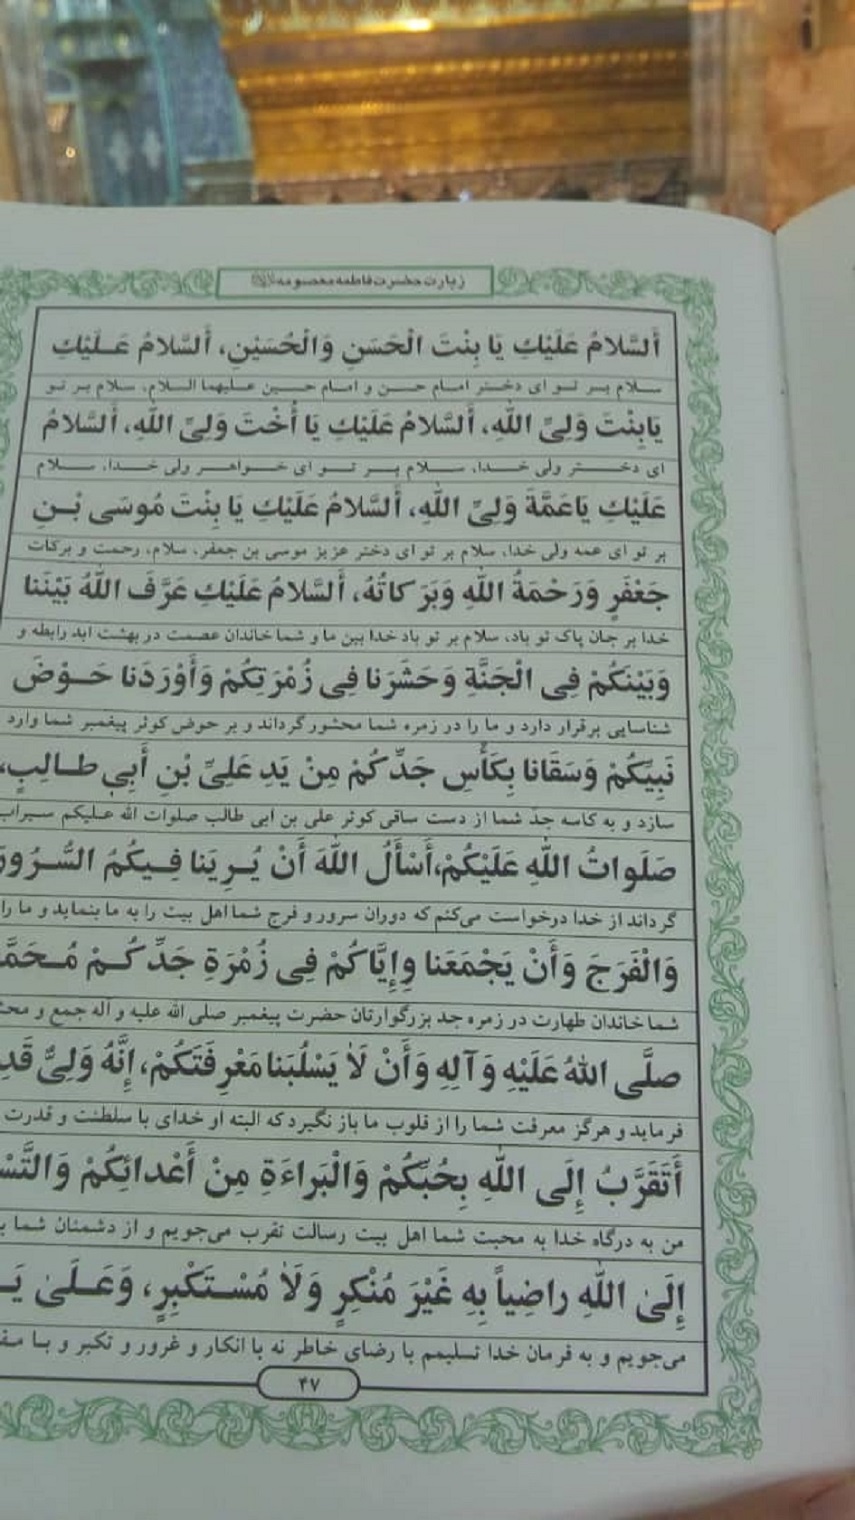 زیارت حضرت فاطمه معصومه
أَلسَّلامُ عَلَيْكِ يَا بِنْتَ الْحَسَنِ وَالْحُسَيْنِ، أَلسَّلامُ عَـلَيْكِ
سـلام بـر تـو ای دختـر امـام حسـن و امـام حسـین علـیهما السلام، سلام بر تو
يَابِنْتَ وَلِيِّ اللهِ، أَلسَّلامُ عَلَيْكِ يَا أُخْتَ وَلِيِّ اللهِ، أَلسَّلامُ
ای دختـر ولی خـدا، سـلام بـر تـو ای خـواهـر ولی خـدا، سـلام
عَلَيْكِ يَاعَمَّةَ وَلِيِّ اللهِ، أَلسَّلامُ عَلَيْكِ يَا بِنْتَ مُوسَى بْـنِ
بر تو ای عمه ولی خدا، سلام بر تو ای دختر عزیز موسی بن جعفر، سلام، رحمت و برکات
جَعْفَرٍ وَرَحْمَةُ اللهِ وَبَرَكاتُهُ، أَلسَّلامُ عَلَيْكِ عَرَّفَ اللهُ بَيْنَنا
خدا بر جان پاک تو باد، سلام بر تو باد خدا بین ما و شما خاندان عصمت در بهشت ابد رابطه و
وَبَيْنَكُمْ فِي الْجَنَّةِ وَحَشَرَنا فِي زُمْرَتِكُمْ وَأَوْرَدَنا حَـوْضَ
شناسایی برقرار دارد و ما را در زمره شما محشور گرداند و بر حوض کوثر پیغمبر شما وارد
نَبِيِّكُمْ وَسَقَانا بِكَأْسِ جَدِّكُمْ مِنْ يَدِ عَلِيِّ بْنِ أَبِي طـالِبٍ،
سازد و به کاسه جدّ شما از دست ساقی کوثر علی بن ابی طالب صلوات الله علـیکم سیراب
صَلَواتُ اللهِ عَلَيْكُمْ، أَسْأَلُ اللهَ أَنْ يُـرِيَنا فِـيكُمُ السُّـرُورَ
گرداند از خدا درخواست می‌کنم که دوران سرور و فرج شما اهل بیت را به ما بنماید و ما را
وَالْفَرَجَ وَأَنْ يَجْمَعَنا وَإِيَّاكُمْ فِي زُمْرَةِ جَدِّكُـمْ مُـحَمَّ
شما خاندان طهارت در زمره جد بزرگوارتان حضرت پیغمبر صلی الله علیه و آله جمع و
صلَّى اللهُ عَلَيْهِ وَآلِهِ وَأَنْ لاَ يَسْلُبَنا مَعْرِفَتَكُمْ، إِنَّهُ وَلِيٌّ
فرماید و هرگز معرفت شما را از قلوب ما باز نگیرد که البته او خدای با سلطنت و قدرت
أَتَقَرَّبُ إِلَى اللهِ بِحُبِّكُمْ وَالْبَراءَةِ مِنْ أَعْدائِكُمْ
من به درگاه خدا به محبت شما اهل بیت رسالت تقرب می‌جویم و از دشمنان شما
إِلَىٰ اللهِ راضِياً بِهِ غَيْرَ مُنْكِرٍ وَلاَ مُسْـتَكْبِرٍ، وَعَـلَىٰ
می‌جویم و به فرمان خدا تسلیمم با رضای خاطر نه با انکار و غرور و تکبر و بـا
۴۷